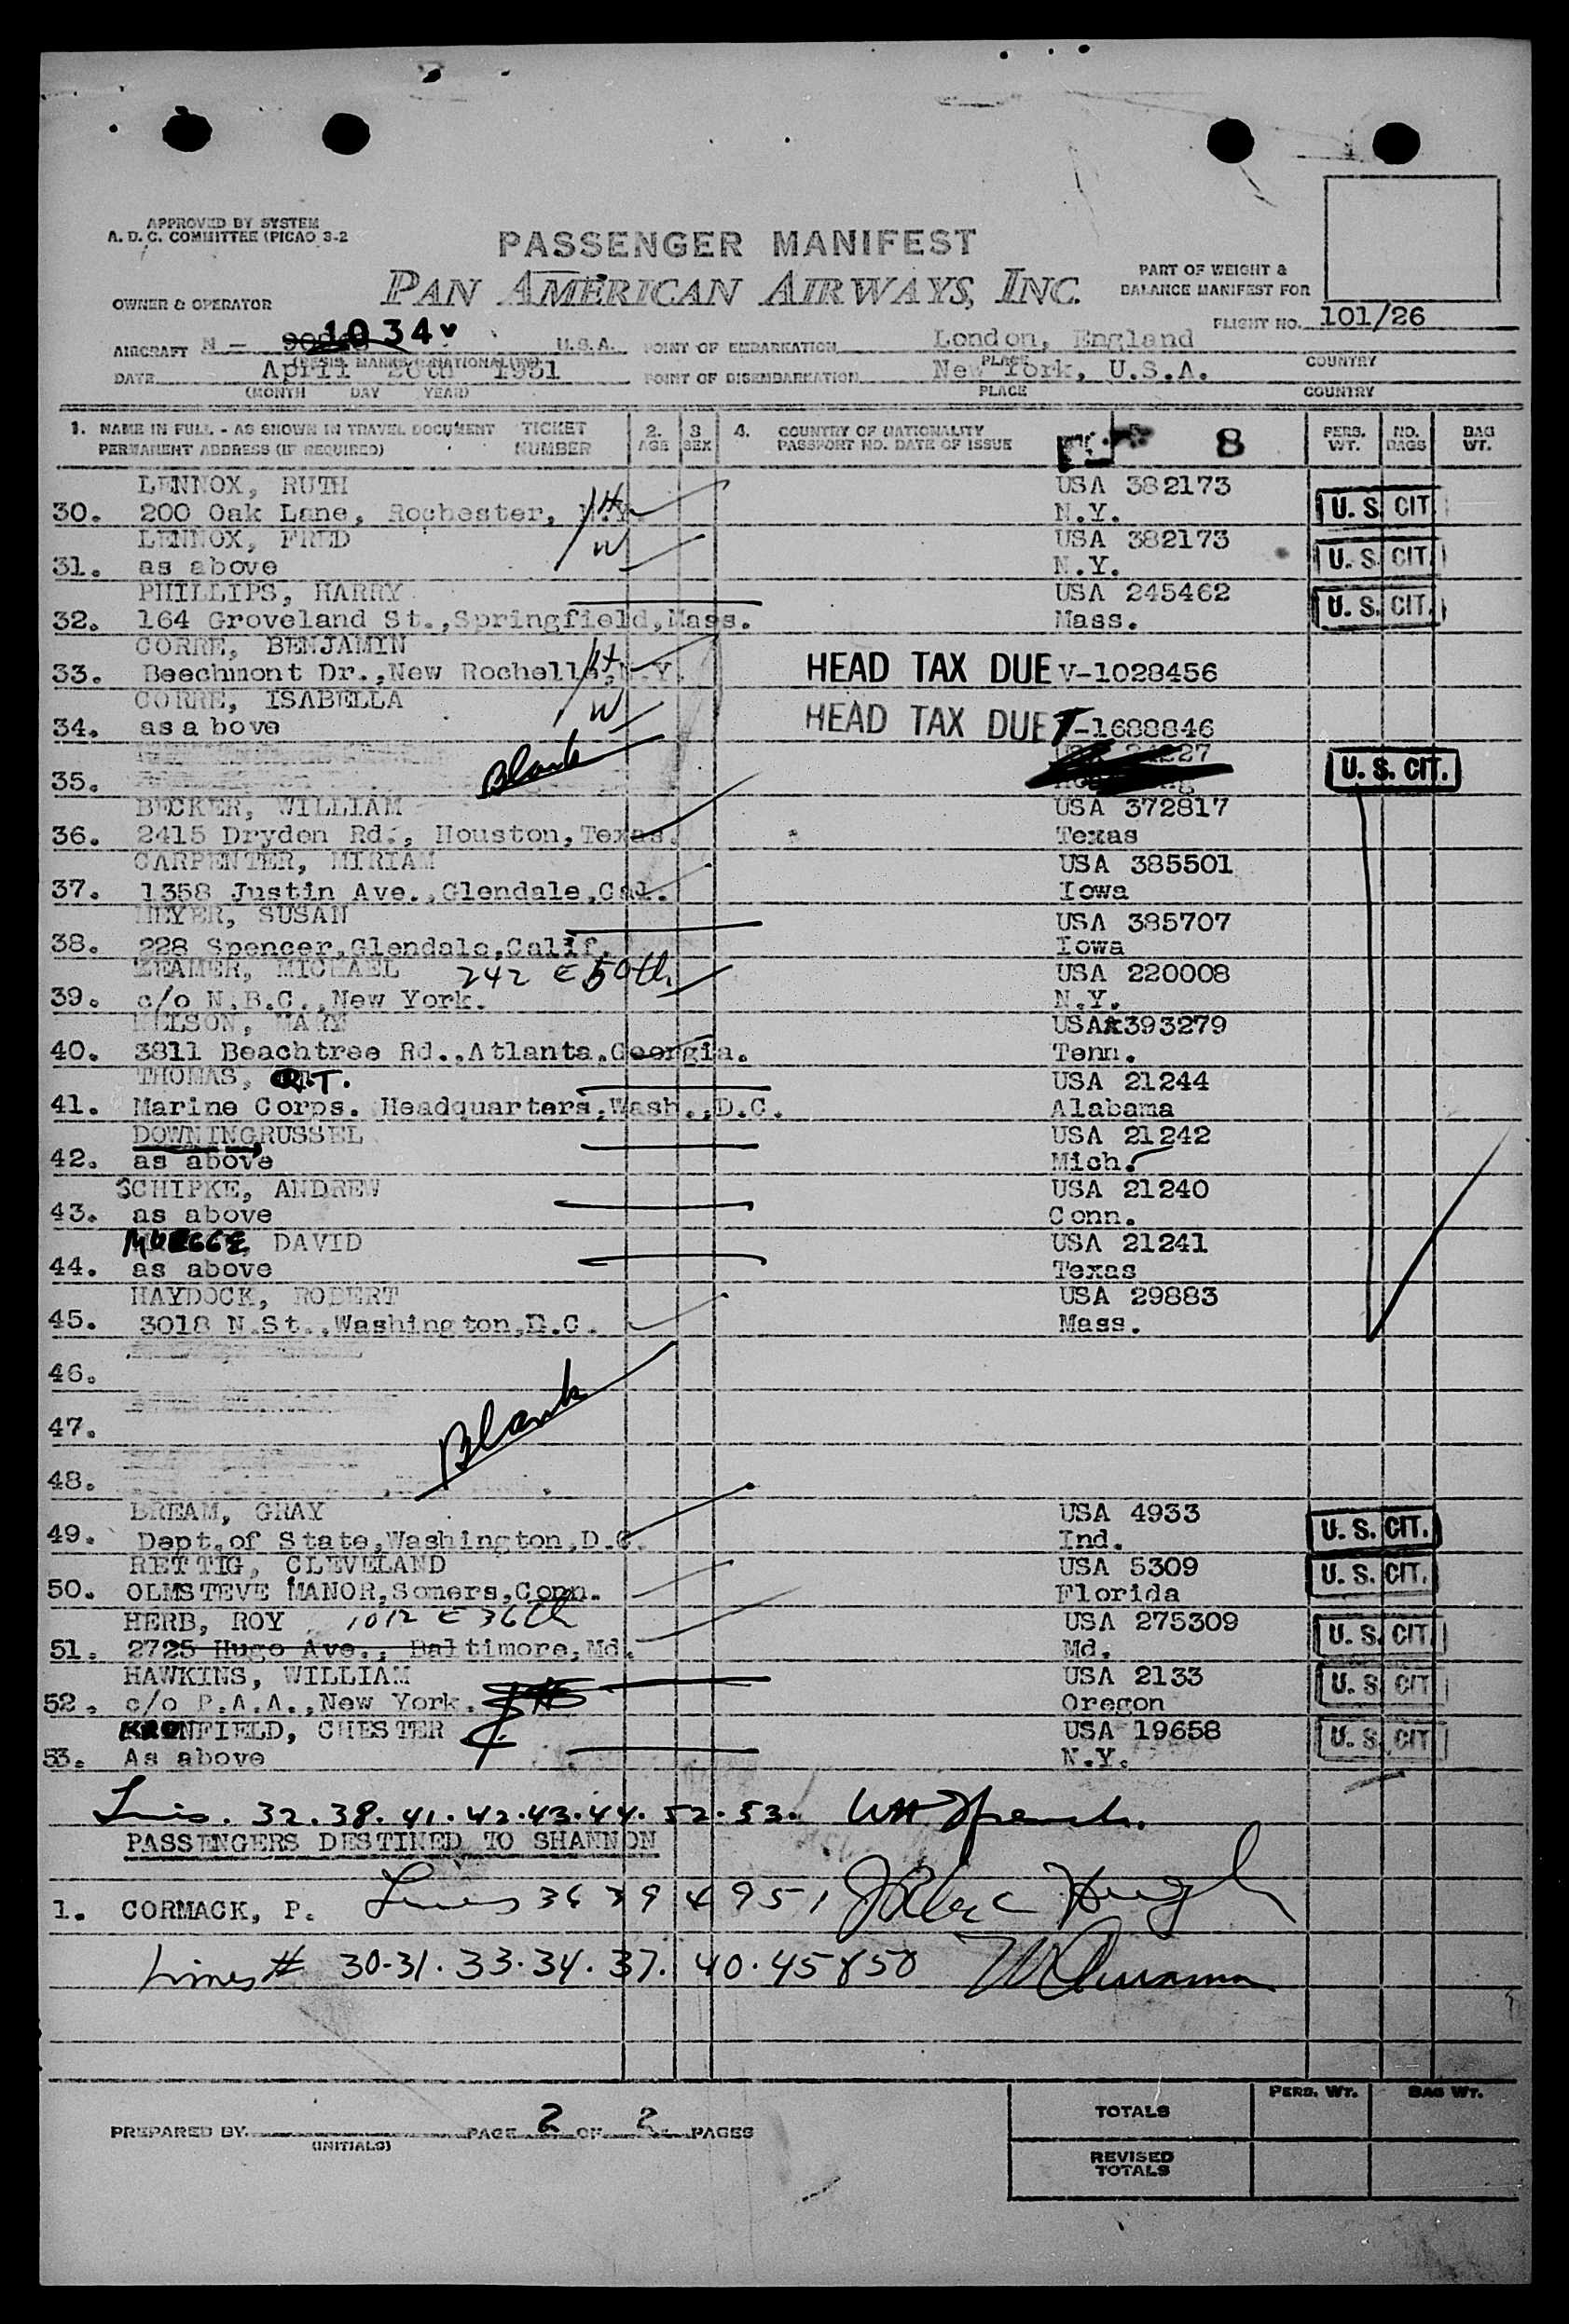 APPROVED BY SYSTEM
A. D. C. COMMITTEE (PICAO 3-2
PASSENGER MANIFEST
PAN AMERICAN AIRWAYS, INC.
PART OF WEIGHT &
BALANCE MANIFEST FOR
OWNER & OPERATOR
FLIGHT NO. 101/26
AIRCRAFT N - 1034V U.S.A. POINT OF EMBARKATION London, England
PLACE COUNTRY
DATE April 26th 1951 POINT OF DISEMBARKATION New York, U.S.A.
(MONTH DAY YEAR) PLACE COUNTRY
1. NAME IN FULL - AS SHOWN IN TRAVEL DOCUMENT TICKET 2. 3 4. COUNTRY OF NATIONALITY 8 PERS. NO. BAG
PERMANENT ADDRESS (IF REQUIRED) NUMBER AGE SEX PASSPORT NO. DATE OF ISSUE WT. BAGS WT.
LENNOX, RUTH USA 382173
30. 200 Oak Lane, Rochester, N.Y. H N.Y. U. S. CIT.
LENNOX, FRED W USA 382173
31. as above N.Y. U. S. CIT.
PHILLIPS, HARRY USA 245462
32. 164 Groveland St.,Springfield,Mass. Mass. U. S. CIT.
CORRE, BENJAMIN
33. Beechmont Dr.,New Rochelle,N.Y. H HEAD TAX DUE V-1028456
CORRE, ISABELLA W
34. as a bove HEAD TAX DUE T-1688846
35. Blank U. S. CIT.
BECKER, WILLIAM USA 372817
36. 2415 Dryden Rd., Houston,Texas. Texas
CARPENTER, MIRIAM USA 385501
37. 1358 Justin Ave.,Glendale,Cal. Iowa
MEYER, SUSAN USA 385707
38. 228 Spencer,Glendale,Calif. Iowa
ZEAMER, MICHAEL 242 E 50th USA 220008
39. c/o N.B.C.,New York. N.Y.
NELSON, MARY USA 393279
40. 3811 Beachtree Rd.,Atlanta,Georgia. Tenn.
THOMAS, R.T. USA 21244
41. Marine Corps. Headquarters,Wash.,D.C. Alabama
DOWNING,RUSSEL USA 21242
42. as above Mich.
SCHIPKE, ANDREW USA 21240
43. as above Conn.
MUEGGE, DAVID USA 21241
44. as above Texas
HAYDOCK, ROBERT USA 29883
45. 3018 N.St.,Washington,D.C. Mass.
46.
47. Blank
48.
BREAM, GRAY USA 4933
49. Dept.of State,Washington,D.C. Ind. U. S. CIT.
RETTIG, CLEVELAND USA 5309
50. OLMSTEVE MANOR,Somers,Conn. Florida U. S. CIT.
HERB, ROY 1012 E 36th USA 275309
51. 2725 Hugo Ave., Baltimore,Md. Md. U. S. CIT.
HAWKINS, WILLIAM USA 2133
52. c/o P.A.A.,New York. Oregon U. S. CIT
KRONFIELD, CHESTER USA 19658
53. As above N.Y. U. S. CIT
32.38.41.42.43.44.52.53.
PASSENGERS DESTINED TO SHANNON
1. CORMACK, P. Lines 36 39 49 51
Lines # 30-31.33.34.37.40.45 & 50
PREPARED BY (INITIALS) PAGE 2 OF 2 PAGES
PERS. WT. BAG WT.
TOTALS
REVISED
TOTALS